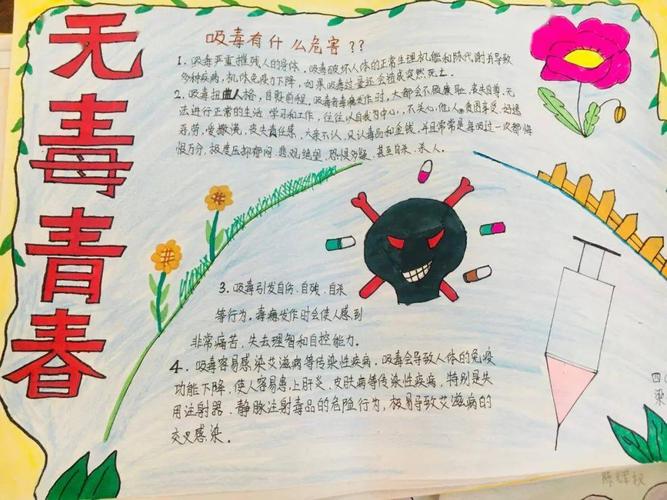 无毒青春
吸毒有什么危害??
1、吸毒严重摧残人的身体、吸毒破坏人体的正常生理机能和新陈代谢并导致
多种疾病,机体免疫力下降,如果吸毒过量还会造成突然死亡。
2、吸毒扭曲人格,自毁前程,吸毒者毒瘾发作时,大都会不顾廉耻、丧失自尊、无
法进行正常的生活 学习和工作,往往以自我为中心,不关心他人,贪图享受、好逸
恶劳、爱撒谎、丧失责任感、六亲不认、只认毒品和金钱、并且常常是每吸过一次都悔
恨万分,极度压抑郁闷、悲观绝望、恐惧多疑、甚至自杀、杀人。
3、吸毒引发自伤、自残、自杀
等行为。毒瘾发作时会使人感到
非常痛苦,失去理智和自控能力。
4、吸毒容易感染艾滋病等传染性疾病、吸毒会导致人体的免疫
功能下降、使人容易患上肝炎、皮肤病等传染性疾病,特别是共
用注射器、静脉注射毒品的危险行为,极易导致艾滋病的
交叉感染。
四
梁